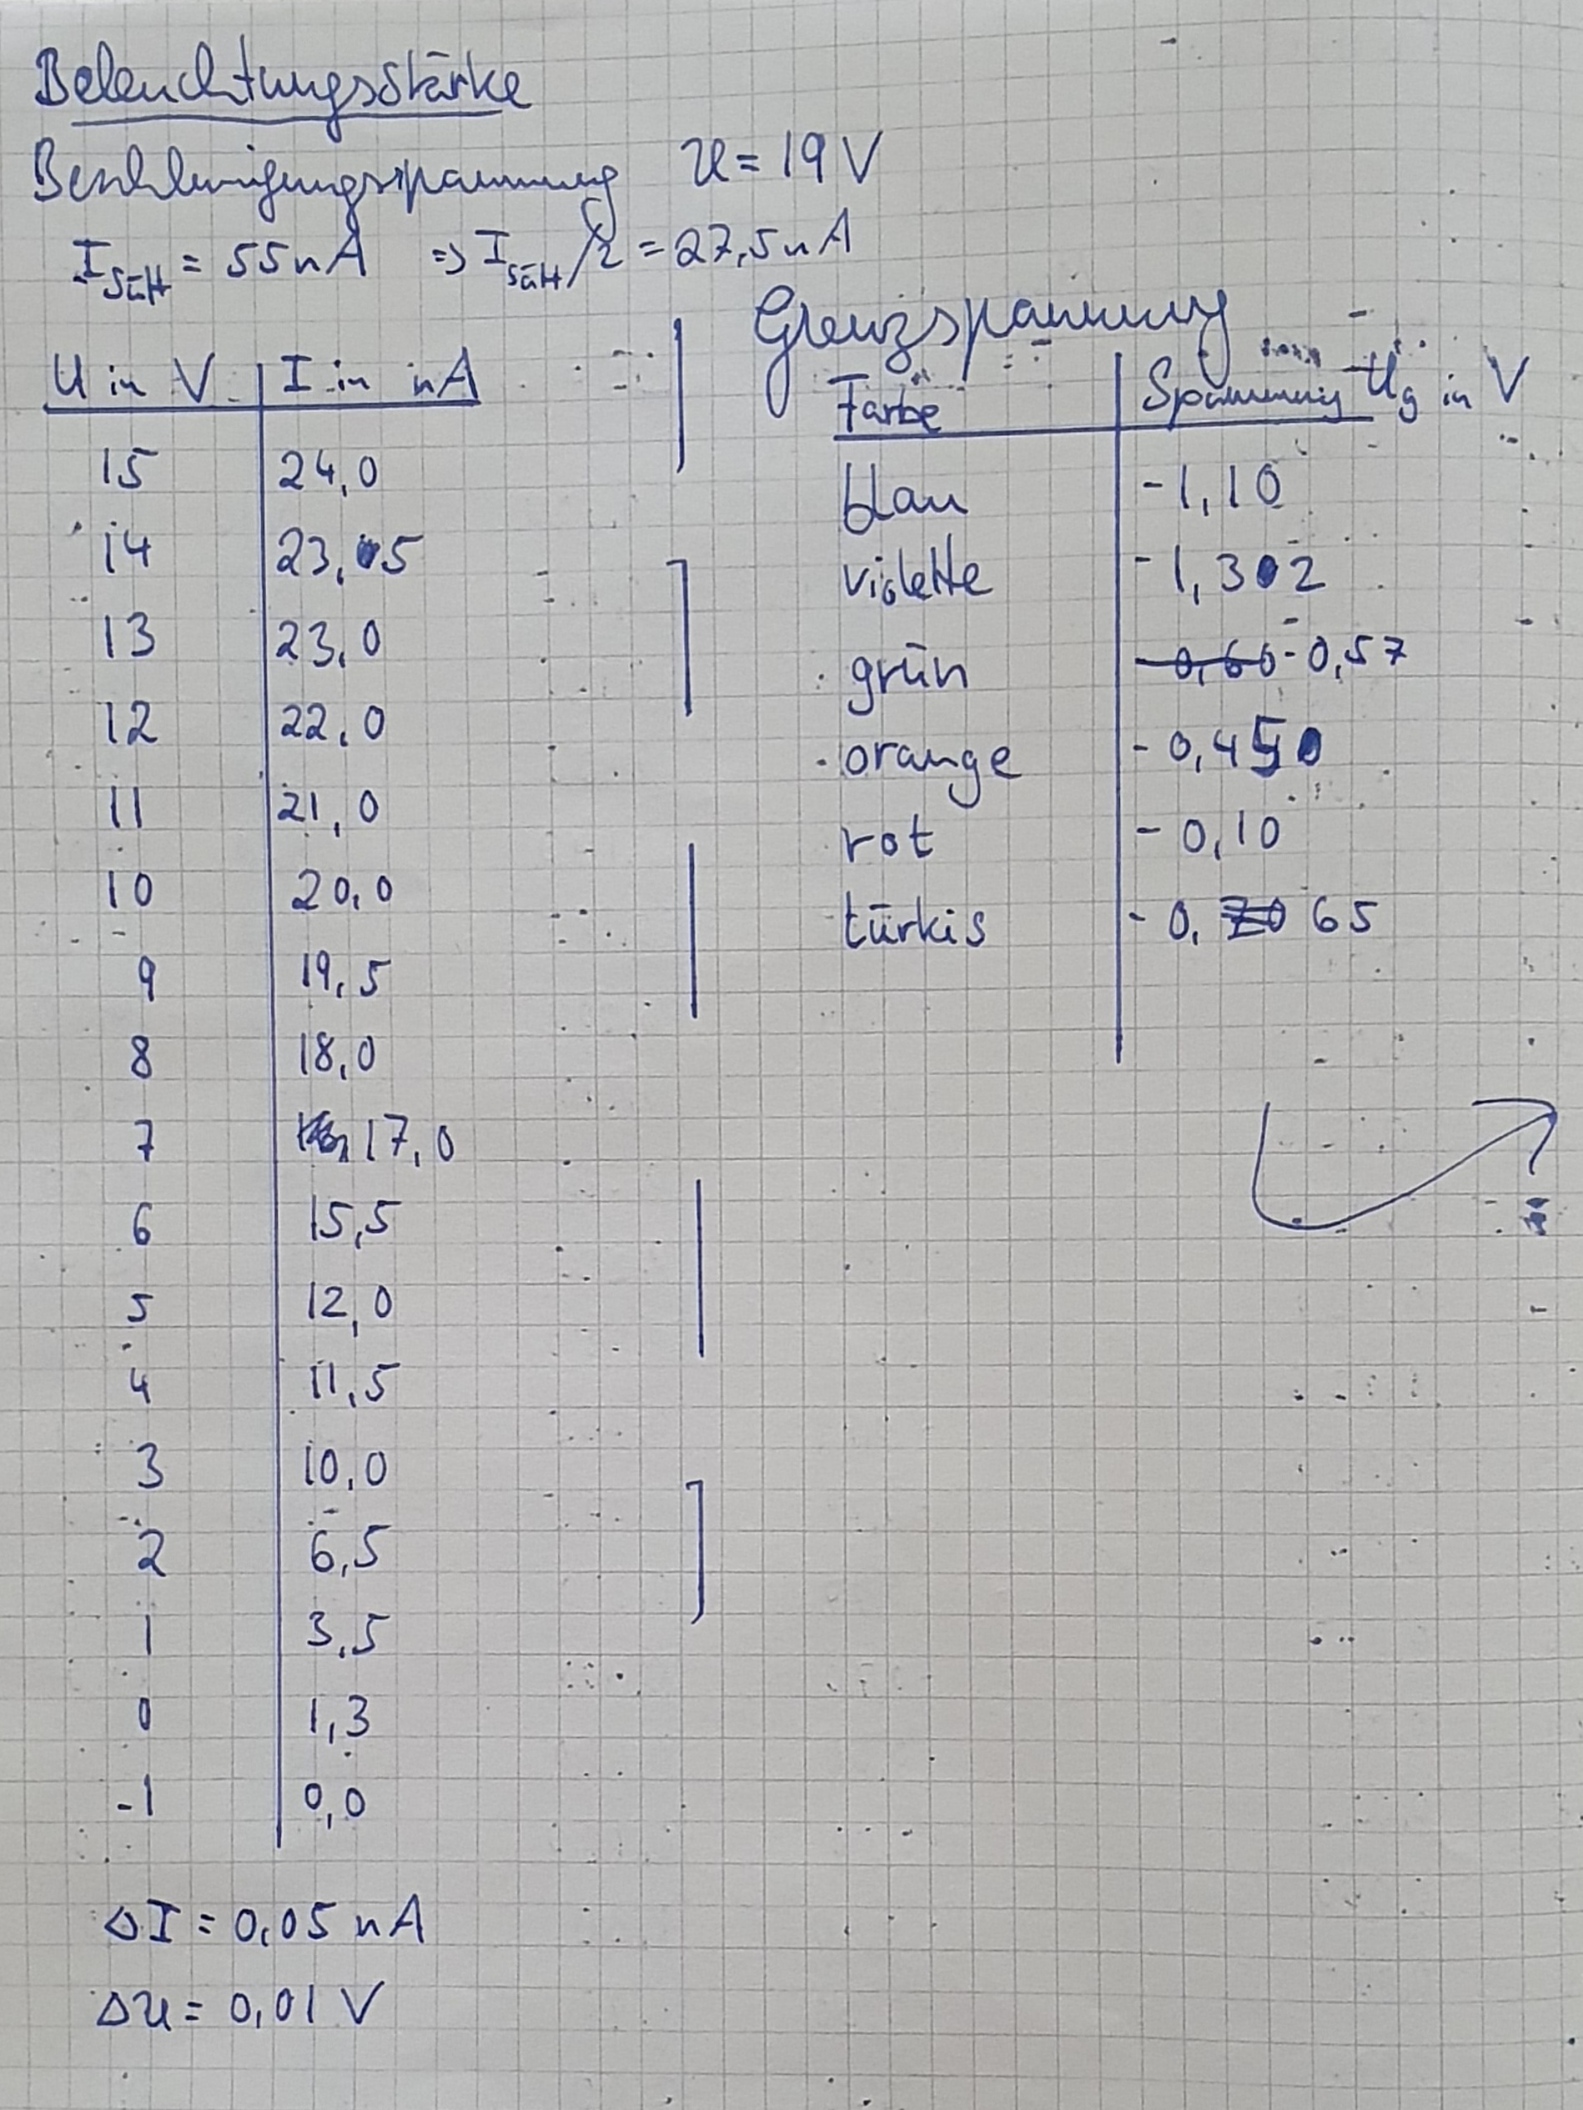 Beleuchtungsstärke
Beschleunigungsspannung U = 19 V
I_Sätt = 55 nA => I_Sätt/2 = 27,5 nA
U in V | I in nA
15 | 24,0
14 | 23,5
13 | 23,0
12 | 22,0
11 | 21,0
10 | 20,0
9 | 19,5
8 | 18,0
7 | 17,0
6 | 15,5
5 | 12,0
4 | 11,5
3 | 10,0
2 | 6,5
1 | 3,5
0 | 1,3
-1 | 0,0
ΔI = 0,05 nA
ΔU = 0,01 V
Grenzspannung
Farbe | Spannung U_g in V
blau | -1,10
violette | -1,32
grün | -0,60 -0,57
orange | -0,45
rot | -0,10
türkis | -0,70 65